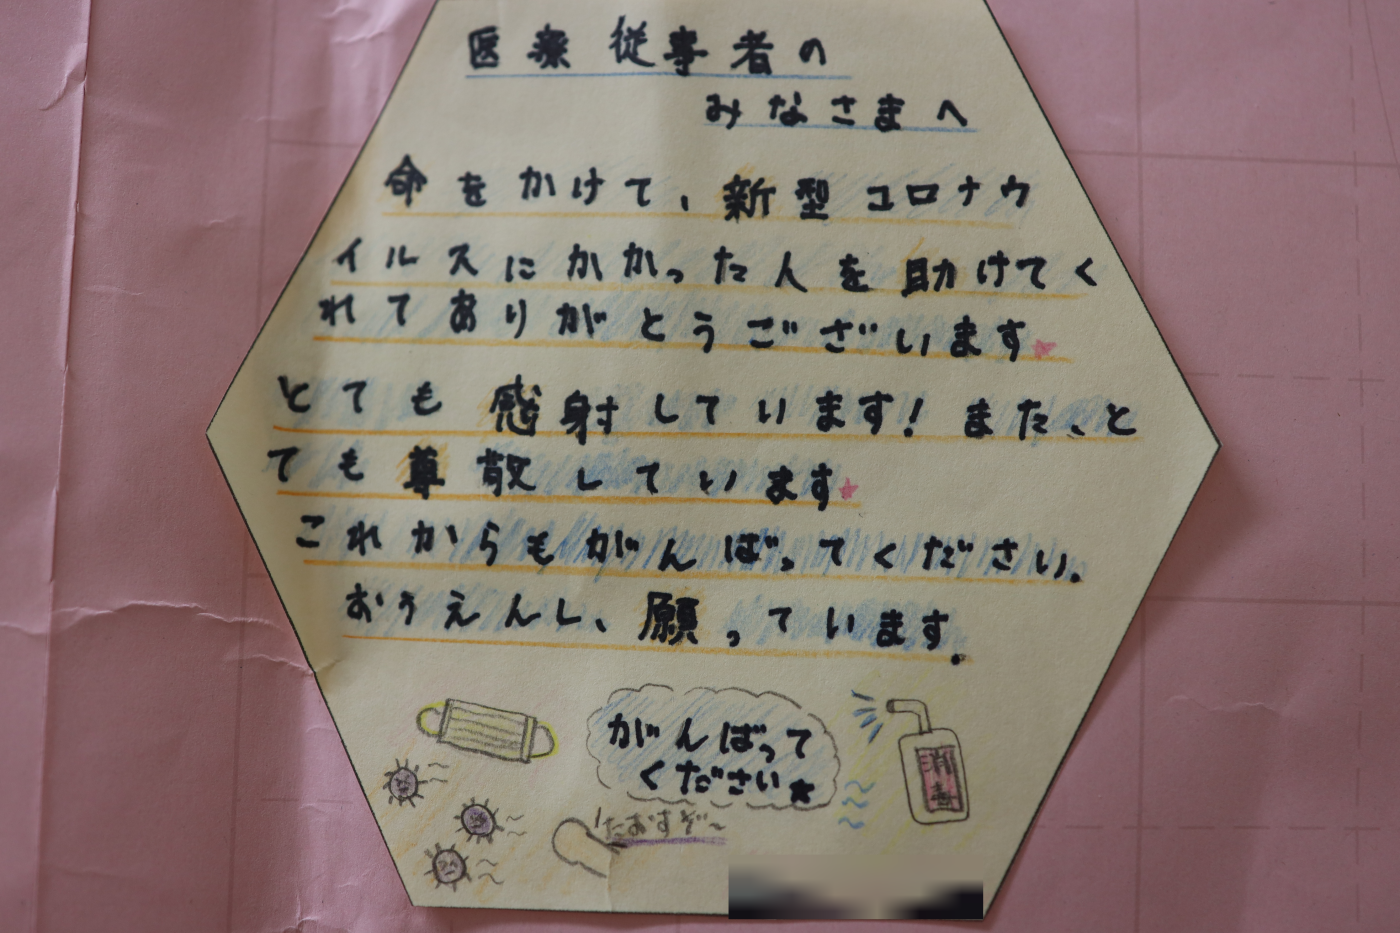 医療従事者の
みなさまへ
命をかけて、新型コロナウ
イルスにかかった人を助けてく
れてありがとうございます
とても感射しています!また、と
ても尊敬しています
これからもがんばってください。
おうえんし、願っています。
がんばって
ください★
たおすぞ~
消毒